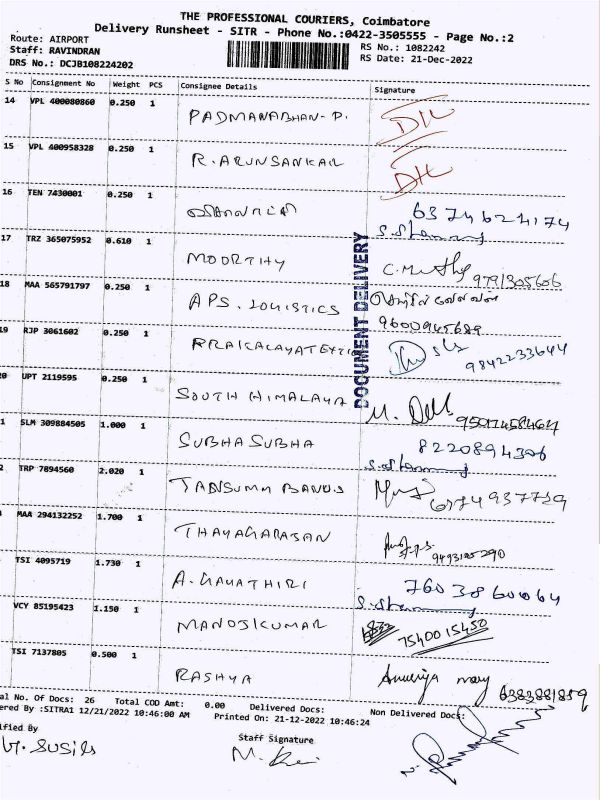 THE PROFESSIONAL COURIERS, Coimbatore
Delivery Runsheet - SITR - Phone No.:0422-3505555 - Page No.:2
Route: AIRPORT
Staff: RAVINDRAN
DRS No.: DCJB108224202
RS No.: 1082242
RS Date: 21-Dec-2022
S No Consignment No Weight PCS Consignee Details Signature
14 VPL 400080860 0.250 1 PADMANABHAN- P. DH
15 VPL 400958328 0.250 1 R. ARUNSANKAR DH
16 TEN 7430001 0.250 1 6374624174
17 TRZ 365075952 0.610 1 MOORTHY 9791305606
DOCUMENT DELIVERY
18 MAA 565791797 0.250 1 APS. LOGISTICS
9600945689
19 RJP 3061602 0.250 1 9842233644
20 UPT 2119595 0.250 1 SOUTH HIMALAYA
1 SLM 309884505 1.000 1 SUBHASUBHA 8220894306
2 TRP 7894560 2.020 1
MAA 294132252 1.700 1 THAYAGARAJAN
TSI 4095719 1.730 1 A. GAYATHIRI 7603860064
VCY 85195423 1.150 1 MANOJKUMAR 7540015450
TSI 7137805 0.500 1 RASHYA 6383881859
al No. Of Docs: 26 Total COD Amt: 0.00 Delivered Docs: Non Delivered Docs:
ered By :SITRA1 12/21/2022 10:46:00 AM Printed On: 21-12-2022 10:46:24
ified By Staff Signature